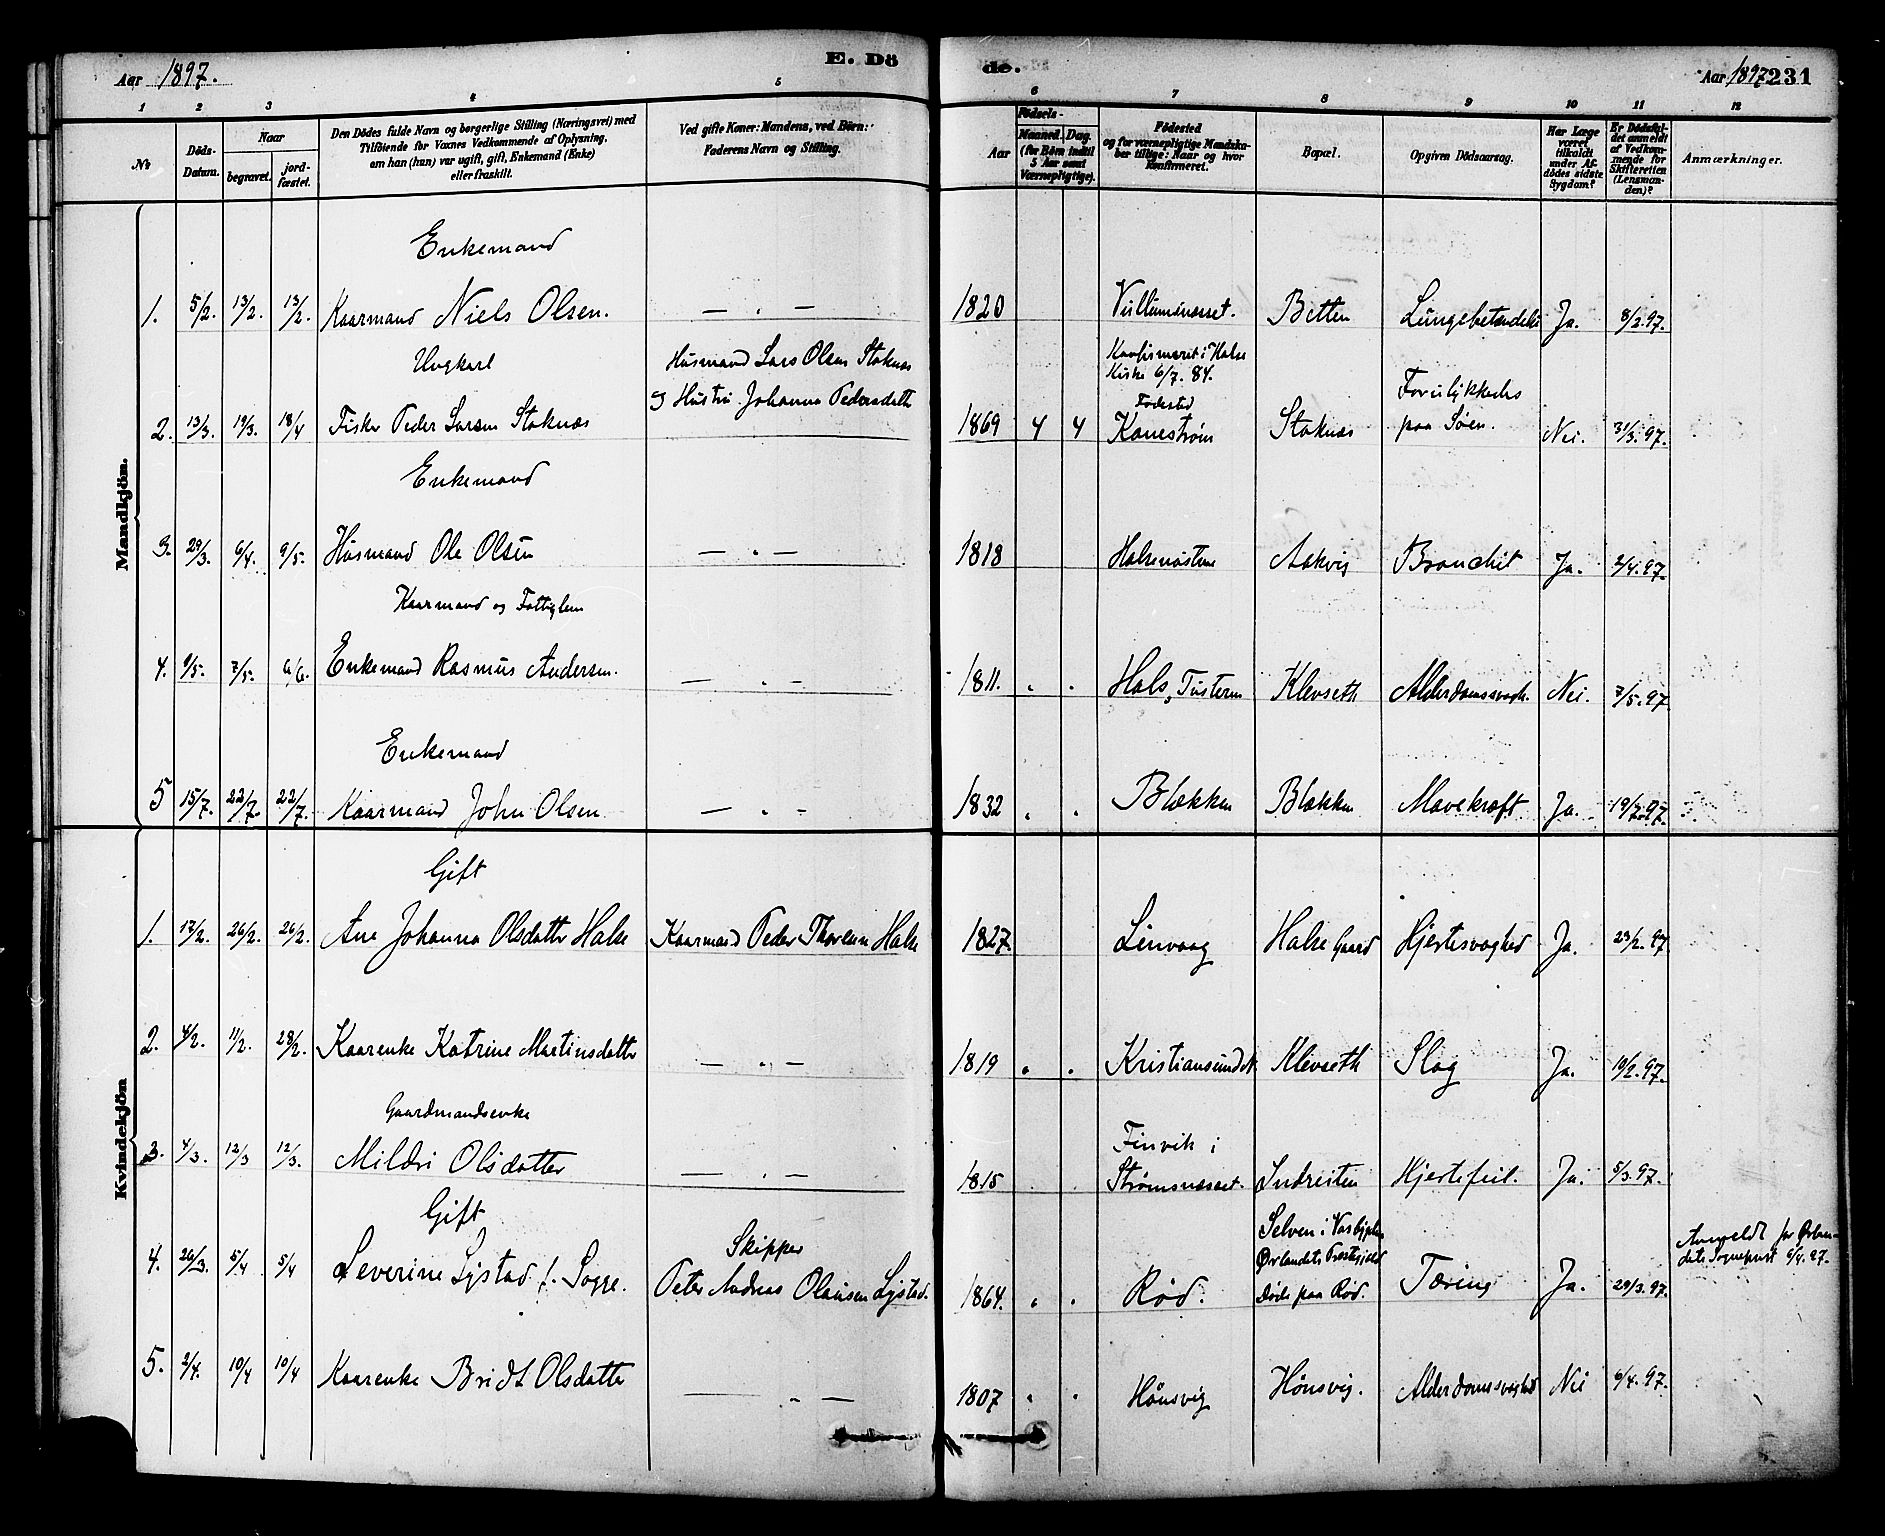 Aar 1897.
E. Dö
de.
Aar 1897 231
1 2 3 4 5 6 7 8 9 10 11 12
No
Döds-Datum.
Naar
begravet.
jord-fæstet.
Den Dödes fulde Navn og borgerlige Stilling (Næringsvei) med
Tilföiende for Voxnes Vedkommende af Oplysning,
om han (hun) var ugift, gift, Enkemand (Enke)
eller fraskilt.
Ved gifte Koner: Mandens, ved Börn:
Faderens Navn og Stilling.
Födsels-
Aar
Maaned. Dag.
(for Börn indtil
5 Aar samt
Værnepligtige).
Födested
og for værnepligtige Mandska-
ber tillige: Naar og hvor
konfirmeret.
Bopæl.
Opgiven Dödsaarsag.
Har Læge
været
tilkaldt
under Af-
dödes sidste
Sygdom?
Er Dödsfal-
det anmeldt
af Vedkom-
mende for
Skifteretten
(Lensman-
den)?
Anmærkninger.
Mandkjön.
Enkemand
1. 5/2. 13/2. 13/2. Kaarmand Niels Olsen. — " — 1820 Betten Lungebetændelse Ja. 8/2.97.
Ungkarl
Husmand Lars Olsen Staknæs
Konfirmeret i Halse
Kirke 6/7.84.
og Hustru Johanna Pedersdatter
Fødested
Forulykkedes
2. 13/3. 19/3. 18/4 Fisker Peder Larsen Staknæs 1869 4 4 Kanestrøm Staknæs paa Søen. Nei. 31/3.97.
Enkemand
3. 29/3. 6/4. 9/5. Husmand Ole Olsen — " — 1818 Aakvig Bronchit Ja. 2/4.97.
Kaarmand og Fattiglem
4. 9/5. 7/5. 6/6. Enkemand Rasmus Andersen. — " — 1811. " " Hals, Tustern Klevseth Alderdomssvagh. Nei. 7/5.97.
Enkemand
5 15/7. 22/7. 22/7. Kaarmand John Olsen — " — 1832 " " Blekken Blekken Mavekræft Ja. 19/7.97.
Kvindekjön
Gift
1. 17/2. 26/2. 26/2. Ane Johanna Olsdatter Halse Kaarmand Peder Thoresen Halse 1827. Linvaag Halse Gaard Hjertesvaghed Ja. 23/2.97
2. 4/2. 11/2. 28/2. Kaarenke Katrine Martinsdatter — " — 1819 " " Kristiansund N. Klevseth Slag Ja. 10/2.97.
Gaardmandsenke
Finvik i
3. 4/3. 12/3 12/3. Mildri Olsdatter — " — 1815 Strømsnæsset. Indresten Hjertefeil. Ja. 5/3.97.
Gift
Skipper
Selven i
Ørlandets Præstegjeld
Anmeldt for Ørlan-
dets Sogneprest 6/4.97.
4. 26/3. 5/4 5/4 Severine Lystad f. Sogge. Peter Andreas Olausen Lystad. 1864. " " Rød. Døde paa Rød. Tæring Ja. 29/3.97.
5. 2/4. 10/4 10/4 Kaarenke Bridt Olsdatter — " — 1807 " " Hønsvig Hønsvig. Alderdomssvaghed Nei 6/4.97.